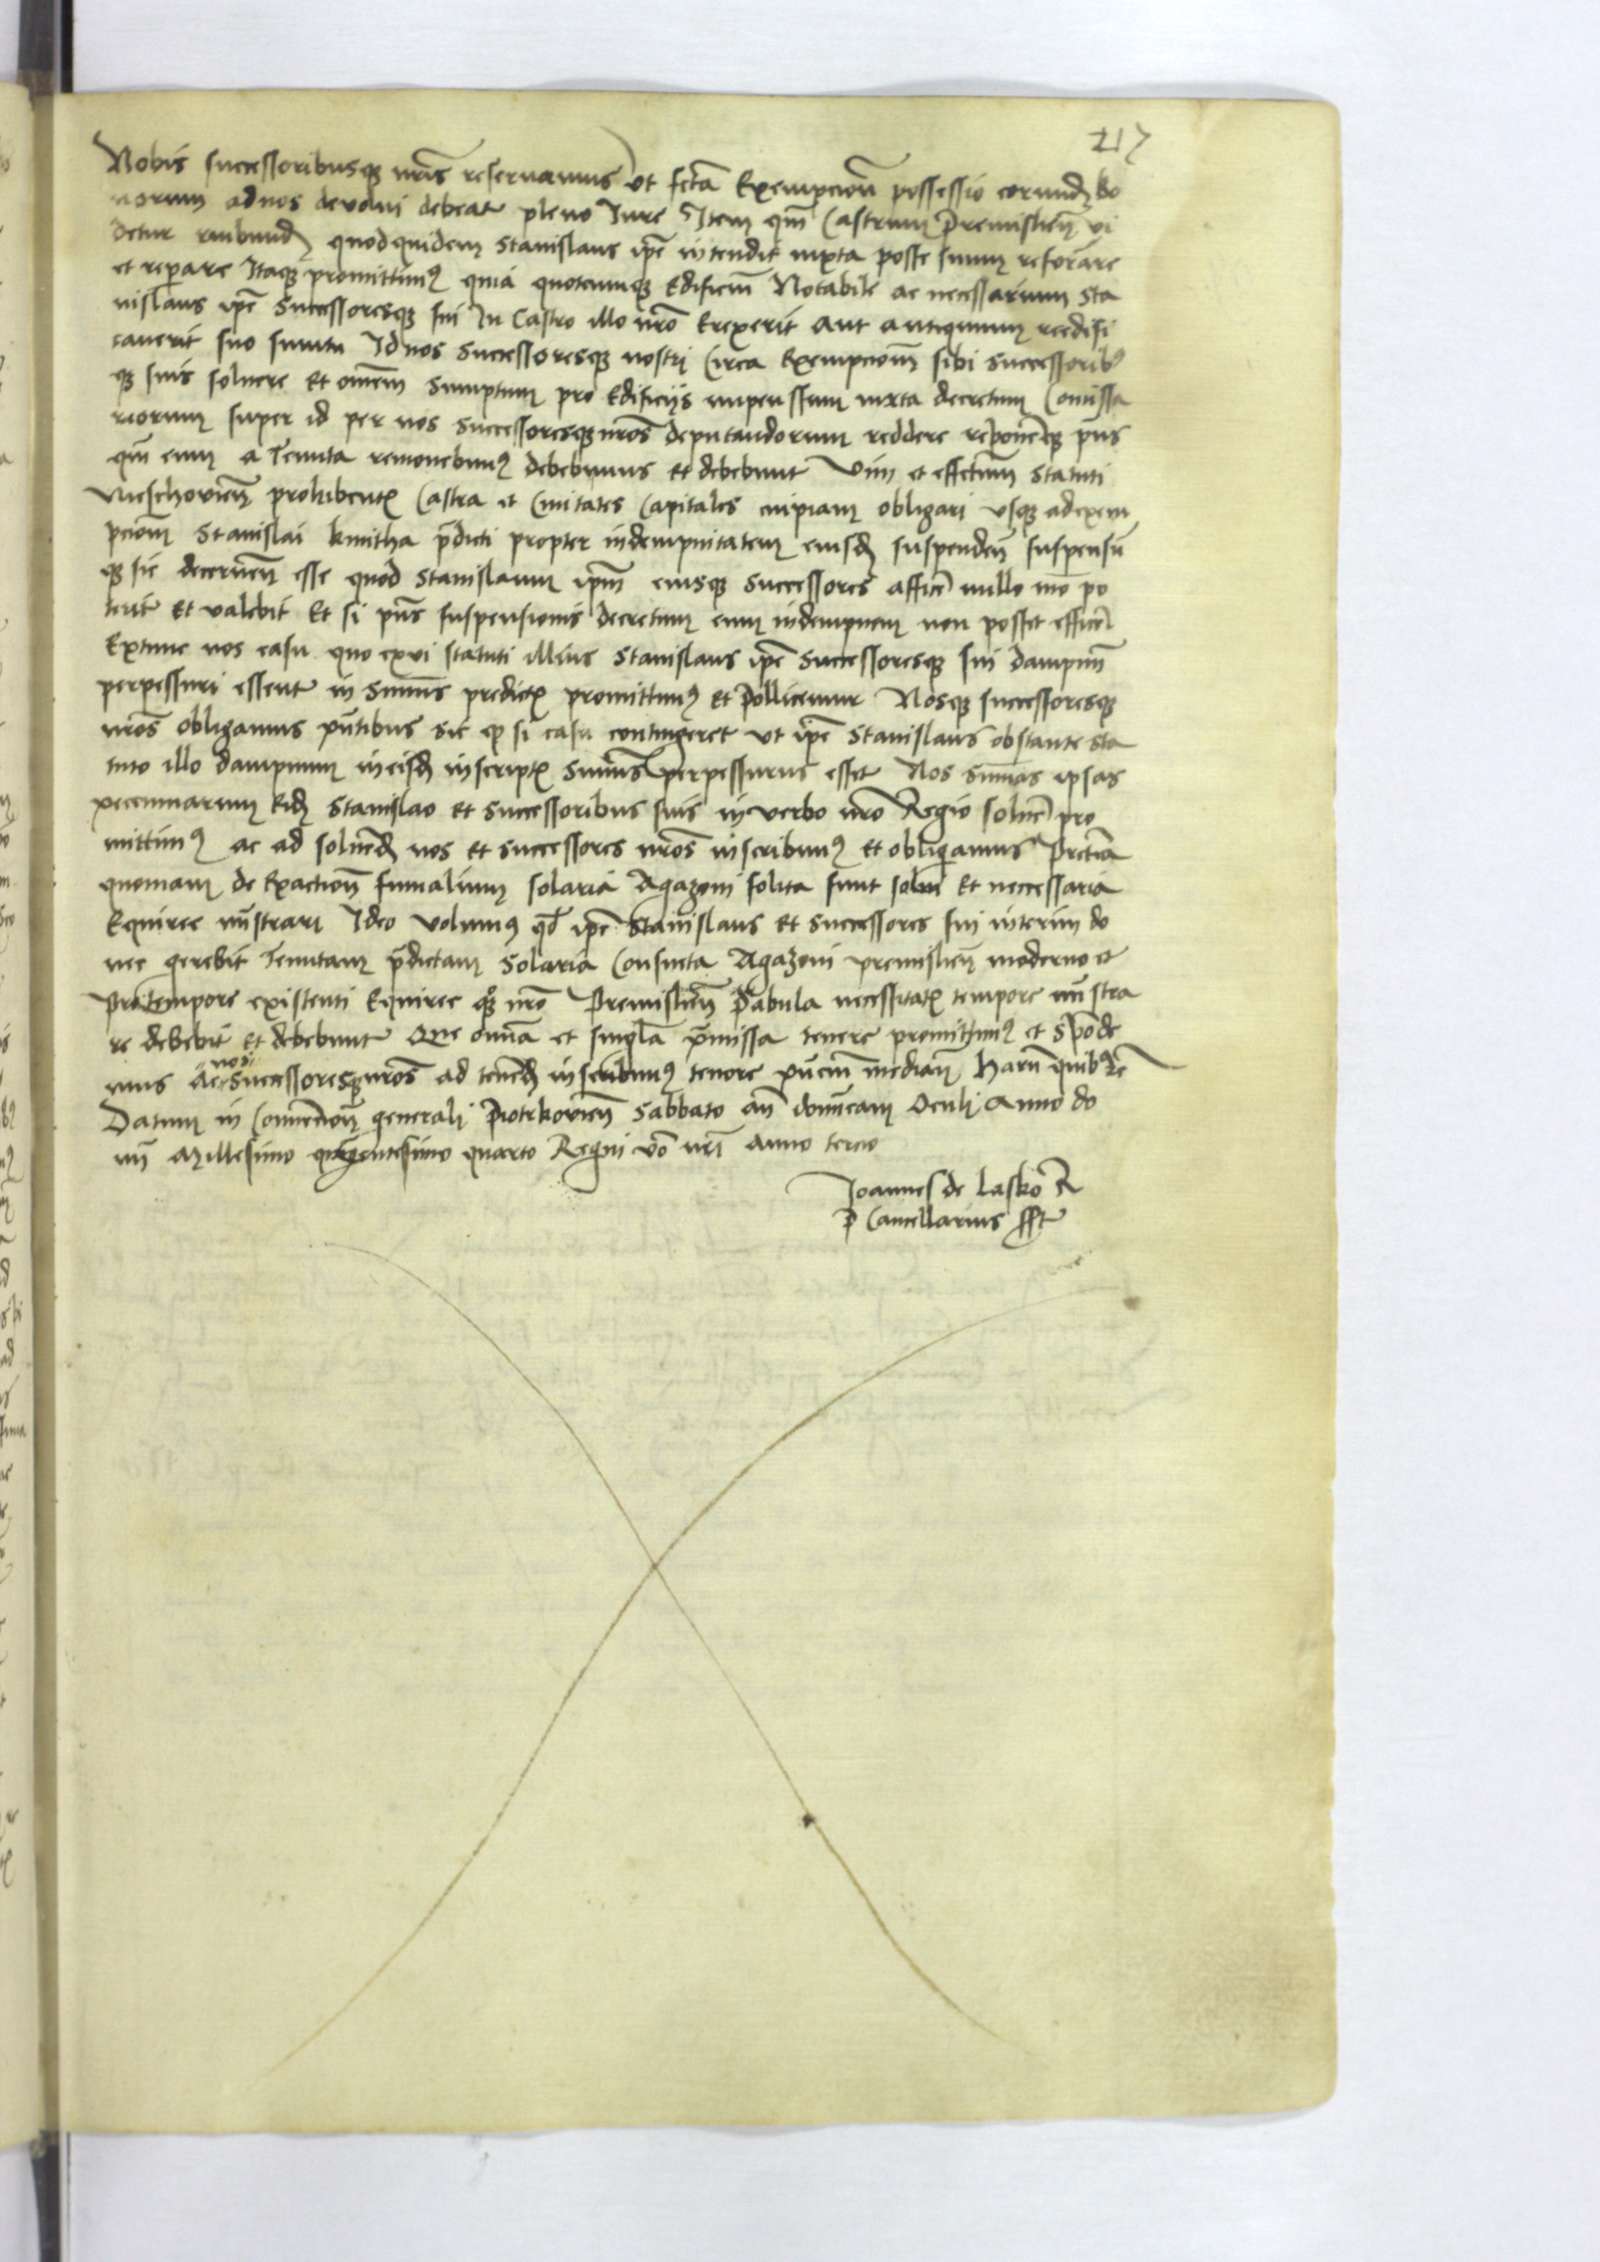 217
Nobis successoribusq; nrīs reseruamus vt fcta Exempcioē possessio eorund bo
norum ad nos deuolui debeat pleno Iure Item qm̄ Castrum Premislieñ vi
detur ruibund quodquidem Stanislaus ipē intendit iuxta posse suum reformare
et reparare Itaq; promittimꝰ quia quotcumq; Edificiū Notabile ac necessarium Sta
nislaus ipē Successoresq; sui In Castro illo nr̄o Erexerit aut antiquum reedifi
cauerit suo sumtu Id nos Successoresq; nostri Circa Exempcioēm sibi successoribꝰ
q; suis soluere Et omēm Sumptum pro Edificijs impenssum iuxta decretum Comissa
riorum super id per nos Successoresq; nrōs deputandorum reddere reponēq; prius
qm̄ eum a Tenuta remouebimꝰ debebimus Et debebunt Vim et effectum Statuti
Nieschouieñ prohibentꝭ Castra et Ciuitates Capitales cuipiam obligari vsq; ad exem
pcioēm Stanislai kmitha p̄dicti propter indempnitatem eiusd suspendeñ suspensū
q; sic decerneñ esse quod Stanislaum ipm̄ eiusq; Successores afficē nullo mō po
terit Et valebit Et si p̄ns suspensionis decretum eum indempnem non posset efficē
Extunc nos casu quo ex vi statuti illius Stanislaus ipē Successoresq; sui dampnū
perpessuri essent in Sum̄is predictꝭ promittimꝰ Et pollicemur Nosq; successoresq;
nrōs obligamus p̄ntibus sic ꝙ si casu contingeret vt ipē Stanislaus obstante sta
tuto illo dampnum in eisd inscriptꝭ Sum̄is perpessurus esset Nos sum̄as ipsas
pecuniarum Eid Stanislao Et Successoribus suis in verbo nr̄o Regio soluē pro
mittimꝰ ac ad soluend nos Et successores nrōs inscribimꝰ Et obligamus Pretea
quoniam de Exactioē fumalium solaria Agazoni solita sunt solui Et necessaria
Equiree mīstrari Ideo volumꝰ qd ipē Stanislaus Et Successores sui interim do
nec gerebit Tenutam p̄dictam Solaria Consueta Agazoni premislieñ moderno et
pro tempore existenti Equiree qꝫ nr̄o Premislieñ Pabula necessitatꝭ tempore mīstra
re debebit Et debebunt Que omnia et singla p̄missa tenere promittimꝰ et spōde
mus Ac nos Successoresq; nrōs ad tenend inscribimꝰ tenore p̄ncium mediañ Harū quibꝰ rē
Datum in Conuencioē generali Piotrkouieñ Sabbato añ domīcam Oculi Anno do
mī Millesimo quingentesimo quarto Regni vō nrī Anno tercio
Joannes de Lasko R
P Cancellarius sst